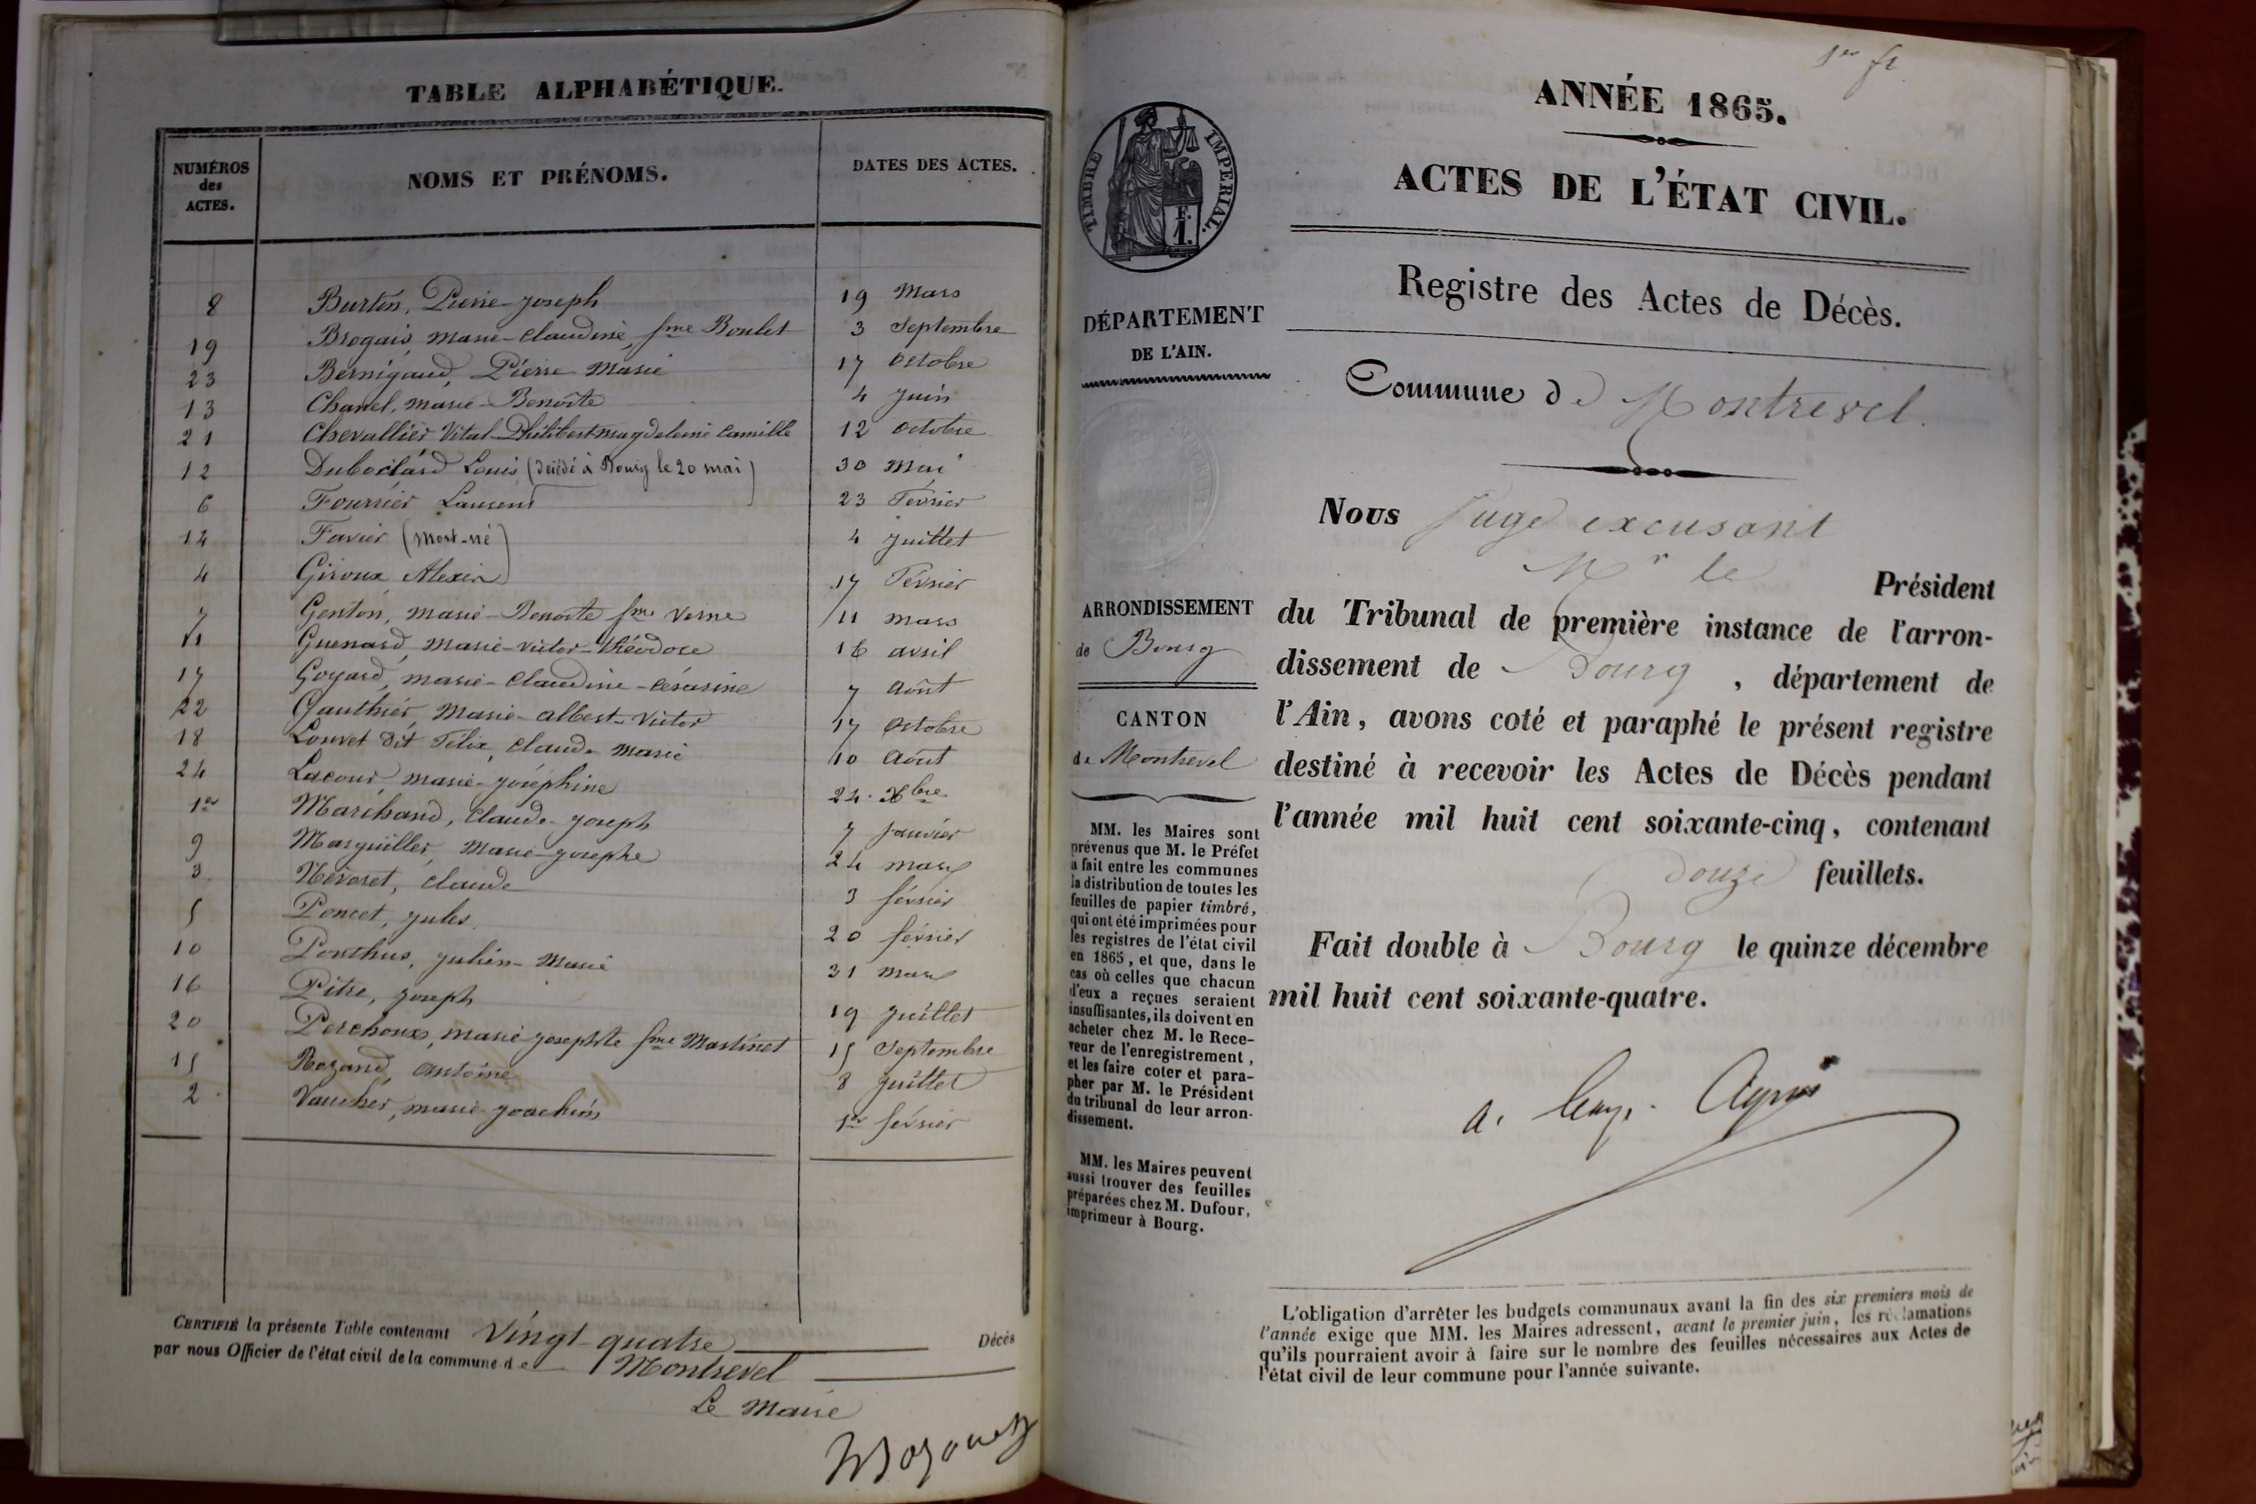 TABLE ALPHABÉTIQUE.
NUMÉROS des ACTES. NOMS ET PRÉNOMS. DATES DES ACTES.
8 Burtin, Pierre-Joseph 19 Mars
19 Brogais, marie-claudine, fme Boulet 3 Septembre
23 Bernigaud, Pierre Marie 17 Octobre
13 Chanel, marie-Benoîte 4 Juin
21 Chevallier Vital-Philibert magdeleine camille 12 Octobre
12 Duboclard Louis (décédé à Bourg le 20 mai) 30 Mai
6 Fournier Laurent 23 Février
14 Favier (Mort-né) 4 Juillet
4 Giroux Alexis 17 Février
7 Genton, marie-Benoîte fme Verne 11 mars
11 Guenard, marie-victor-théodore 16 avril
17 Goyard, marie-claudine-césarine 7 Août
22 Gauthier, Marie-albert-victor 17 Octobre
18 Louvet dit Félix, claude marie 10 Août
24 Lacour, marie-joséphine 24 Xbre
1er Marchand, claude-joseph 7 janvier
9 Marguiller, Marie-josephe 24 mars
3 Névoret, claude 3 février
5 Poncet, jules. 20 février
10 Ponthus, julien-Marie 31 mars
16 Pitre, joseph 19 juillet
20 Perchoux, marie josephte fme Martinet 15 Septembre
15 Rozand, antoine 8 juillet
2 Vaucher, marie joachim 1er février
CERTIFIÉ la présente Table contenant Vingt-quatre Décès
par nous Officier de l'état civil de la commune de Montrevel
Le Maire
1er ft
ANNÉE 1865.
ACTES DE L'ÉTAT CIVIL.
Registre des Actes de Décès.
Commune de Montrevel.
TIMBRE IMPÉRIAL.
F.
1.
DÉPARTEMENT
DE L'AIN.
ARRONDISSEMENT
de Bourg
CANTON
de Montrevel
MM. les Maires sont
prévenus que M. le Préfet
a fait entre les communes
la distribution de toutes les
feuilles de papier timbré,
qui ont été imprimées pour
les registres de l'état civil
en 1865, et que, dans le
cas où celles que chacun
d'eux a reçues seraient
insuffisantes, ils doivent en
acheter chez M. le Rece-
veur de l'enregistrement,
et les faire coter et para-
pher par M. le Président
du tribunal de leur arron-
dissement.
MM. les Maires peuvent
aussi trouver des feuilles
préparées chez M. Dufour,
imprimeur à Bourg.
Nous Juge excusant
Mr le Président
du Tribunal de première instance de l'arron-
dissement de Bourg, département de
l'Ain, avons coté et paraphé le présent registre
destiné à recevoir les Actes de Décès pendant
l'année mil huit cent soixante-cinq, contenant
douze feuillets.
Fait double à Bourg le quinze décembre
mil huit cent soixante-quatre.
L'obligation d'arrêter les budgets communaux avant la fin des six premiers mois de
l'année exige que MM. les Maires adressent, avant le premier juin, les réclamations
qu'ils pourraient avoir à faire sur le nombre des feuilles nécessaires aux Actes de
l'état civil de leur commune pour l'année suivante.